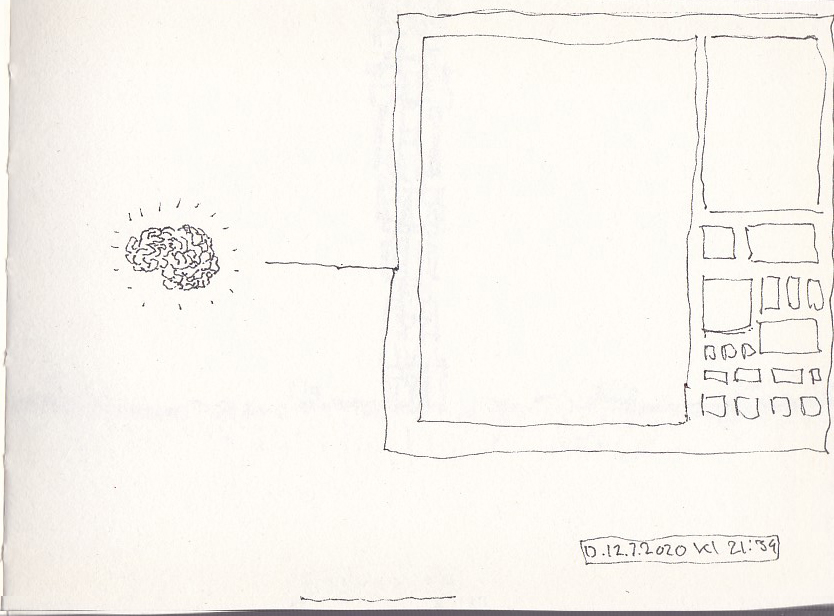 D.12.7.2020 kl 21:34